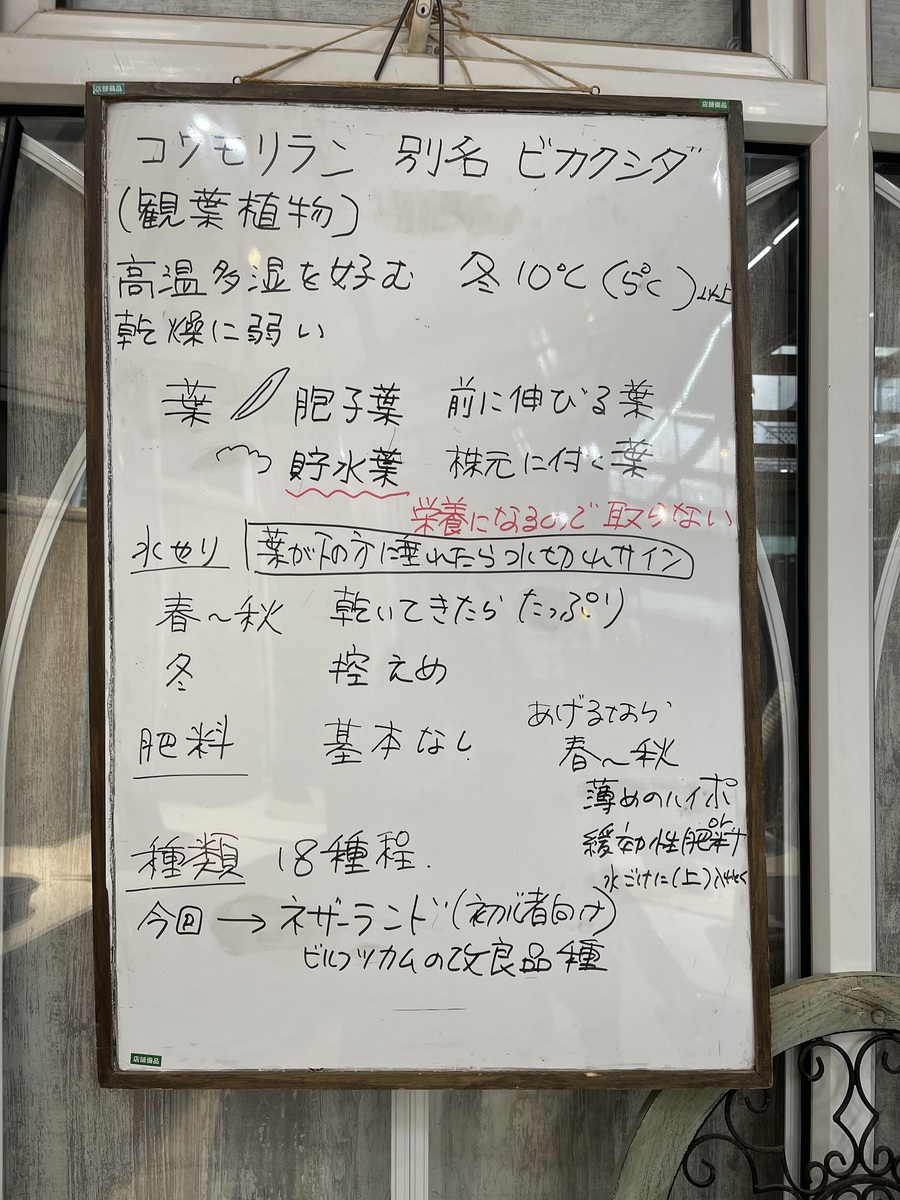 店舗備品 店舗備品
コウモリラン 別名 ビカクシダ
(観葉植物)
高温多湿を好む 冬 10℃ (5℃)以上
乾燥に弱い
葉 胞子葉 前に伸びる葉
貯水葉 株元に付く葉
栄養になるので取らない
水やり 葉が下の方に垂れたら水切れサイン
春〜秋 乾いてきたら たっぷり
冬 控えめ
肥料 基本なし
あげるなら
春〜秋
薄めのハイポ
or
緩効性肥料
水ごけに(上)
種類 18種程.
今回 → ネザーランド(初心者向け)
ビルフツカムの改良品種
店舗備品